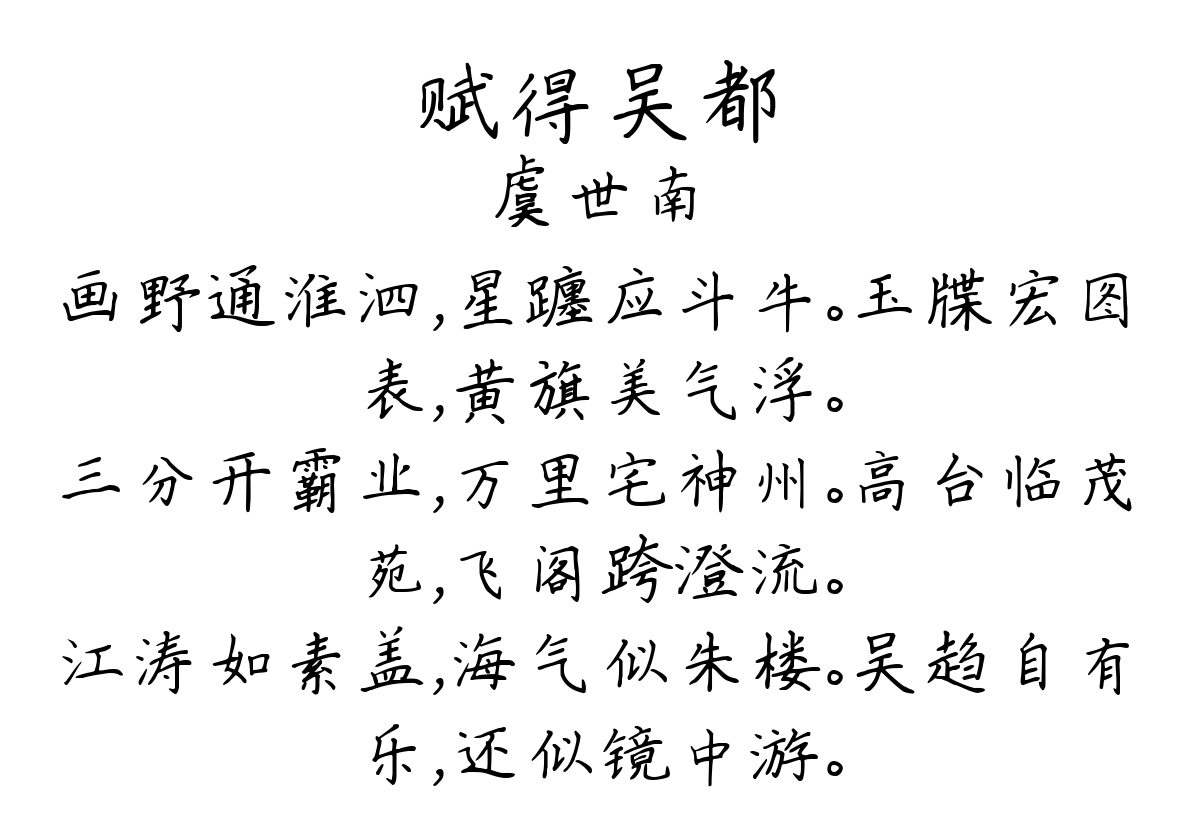 赋得吴都
虞世南
画野通淮泗,星躔应斗牛。玉牒宏图
表,黄旗美气浮。
三分开霸业,万里宅神州。高台临茂
苑,飞阁跨澄流。
江涛如素盖,海气似朱楼。吴趋自有
乐,还似镜中游。